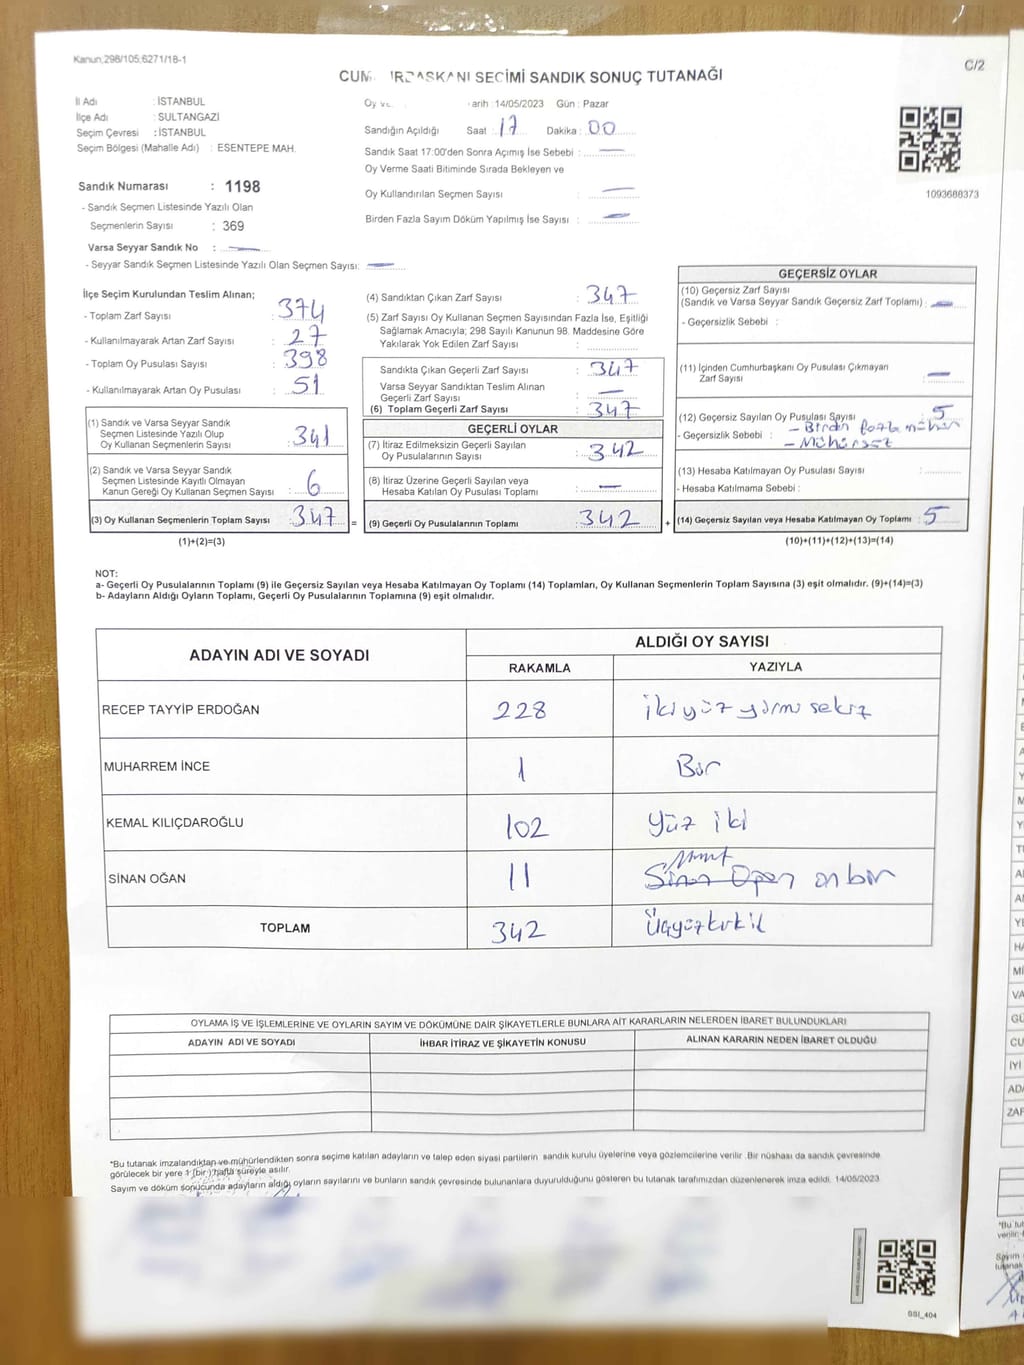 Kanun;298/105;6271/18-1
C/2
SEÇİMİ SANDIK SONUÇ TUTANAĞI
İl Adı : İSTANBUL
İlçe Adı : SULTANGAZİ
Seçim Çevresi : İSTANBUL
Seçim Bölgesi (Mahalle Adı) : ESENTEPE MAH.
14/05/2023 Gün : Pazar
Sandığın Açıldığı Saat : 17 Dakika : 00
Sandık Saat 17:00'den Sonra Açımış İse Sebebi : —
Oy Verme Saati Bitiminde Sırada Bekleyen ve
Oy Kullandırılan Seçmen Sayısı : —
Birden Fazla Sayım Döküm Yapılmış İse Sayısı : —
1093688373
Sandık Numarası : 1198
- Sandık Seçmen Listesinde Yazılı Olan
Seçmenlerin Sayısı : 369
Varsa Seyyar Sandık No : —
- Seyyar Sandık Seçmen Listesinde Yazılı Olan Seçmen Sayısı: —
İlçe Seçim Kurulundan Teslim Alınan;
- Toplam Zarf Sayısı : 374
- Kullanılmayarak Artan Zarf Sayısı : 27
- Toplam Oy Pusulası Sayısı : 398
- Kullanılmayarak Artan Oy Pusulası : 51
(1) Sandık ve Varsa Seyyar Sandık
Seçmen Listesinde Yazılı Olup
Oy Kullanan Seçmenlerin Sayısı : 341
(2) Sandık ve Varsa Seyyar Sandık
Seçmen Listesinde Kayıtlı Olmayan
Kanun Gereği Oy Kullanan Seçmen Sayısı : 6
(3) Oy Kullanan Seçmenlerin Toplam Sayısı : 347
(1)+(2)=(3)
(4) Sandıktan Çıkan Zarf Sayısı : 347
(5) Zarf Sayısı Oy Kullanan Seçmen Sayısından Fazla İse, Eşitliği
Sağlamak Amacıyla; 298 Sayılı Kanunun 98. Maddesine Göre
Yakılarak Yok Edilen Zarf Sayısı :
Sandıkta Çıkan Geçerli Zarf Sayısı : 347
Varsa Seyyar Sandıktan Teslim Alınan
Geçerli Zarf Sayısı : —
(6) Toplam Geçerli Zarf Sayısı : 347
GEÇERLİ OYLAR
(7) İtiraz Edilmeksizin Geçerli Sayılan
Oy Pusulalarının Sayısı : 342
(8) İtiraz Üzerine Geçerli Sayılan veya
Hesaba Katılan Oy Pusulası Toplamı : —
= (9) Geçerli Oy Pusulalarının Toplamı : 342 +
GEÇERSİZ OYLAR
(10) Geçersiz Zarf Sayısı
(Sandık ve Varsa Seyyar Sandık Geçersiz Zarf Toplamı) : —
- Geçersizlik Sebebi :
(11) İçinden Cumhurbaşkanı Oy Pusulası Çıkmayan
Zarf Sayısı : —
(12) Geçersiz Sayılan Oy Pusulası Sayısı : 5
- Geçersizlik Sebebi : - Birden fazla mühür
- Mühürsüz
(13) Hesaba Katılmayan Oy Pusulası Sayısı :
- Hesaba Katılmama Sebebi :
(14) Geçersiz Sayılan veya Hesaba Katılmayan Oy Toplamı : 5
(10)+(11)+(12)+(13)=(14)
NOT:
a- Geçerli Oy Pusulalarının Toplamı (9) ile Geçersiz Sayılan veya Hesaba Katılmayan Oy Toplamı (14) Toplamları, Oy Kullanan Seçmenlerin Toplam Sayısına (3) eşit olmalıdır. (9)+(14)=(3)
b- Adayların Aldığı Oyların Toplamı, Geçerli Oy Pusulalarının Toplamına (9) eşit olmalıdır.
ADAYIN ADI VE SOYADI
ALDIĞI OY SAYISI
RAKAMLA YAZIYLA
RECEP TAYYİP ERDOĞAN 228 ikiyüz yirmi sekiz
MUHARREM İNCE 1 Bir
KEMAL KILIÇDAROĞLU 102 Yüz iki
SİNAN OĞAN 11 Sinan on bir
TOPLAM 342 Üçyüzkırkiki
OYLAMA İŞ VE İŞLEMLERİNE VE OYLARIN SAYIM VE DÖKÜMÜNE DAİR ŞİKAYETLERLE BUNLARA AİT KARARLARIN NELERDEN İBARET BULUNDUKLARI
ADAYIN ADI VE SOYADI İHBAR İTİRAZ VE ŞİKAYETİN KONUSU ALINAN KARARIN NEDEN İBARET OLDUĞU
*Bu tutanak imzalandıktan ve mühürlendikten sonra seçime katılan adayların ve talep eden siyasi partilerin sandık kurulu üyelerine veya gözlemcilerine verilir. Bir nüshası da sandık çevresinde
görülecek bir yere 1 (bir) hafta süreyle asılır.
Sayım ve döküm sonucunda adayların aldığı oyların sayılarını ve bunların sandık çevresinde bulunanlara duyurulduğunu gösteren bu tutanak tarafımızdan düzenlenerek imza edildi. 14/05/2023
SSI_404